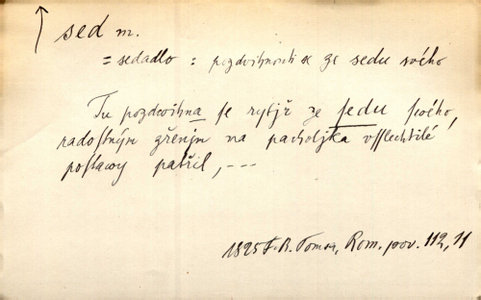 sed m.
= sedadlo : pozdvihnouti se ze sedu svého
Tu pozdwihna se rytjř ze sedu swého,
radostným zřenjm na pacholjka vsslechtilé
postawy patřil, ---
1825 F. B. Tomsa, Rom. pov. 112, 11